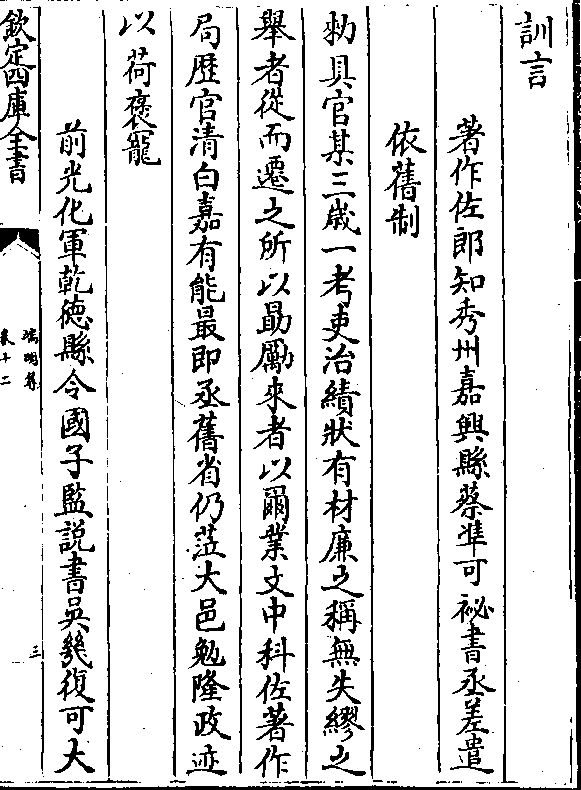 訓言
著作佐郎知秀州嘉興縣蔡準可祕書丞差遣
依舊制
勑具官某三歲一考吏治績狀有材廉之稱無失繆之
舉者從而遷之所以勗勵來者以爾業文中科佐著作
局歷官清白嘉有能最即丞舊省仍莅大邑勉隆政迹
以荷褒寵
前光化軍乾德縣令國子監説書吳㡬復可大
欽定四庫全書
端明集
卷十二
三